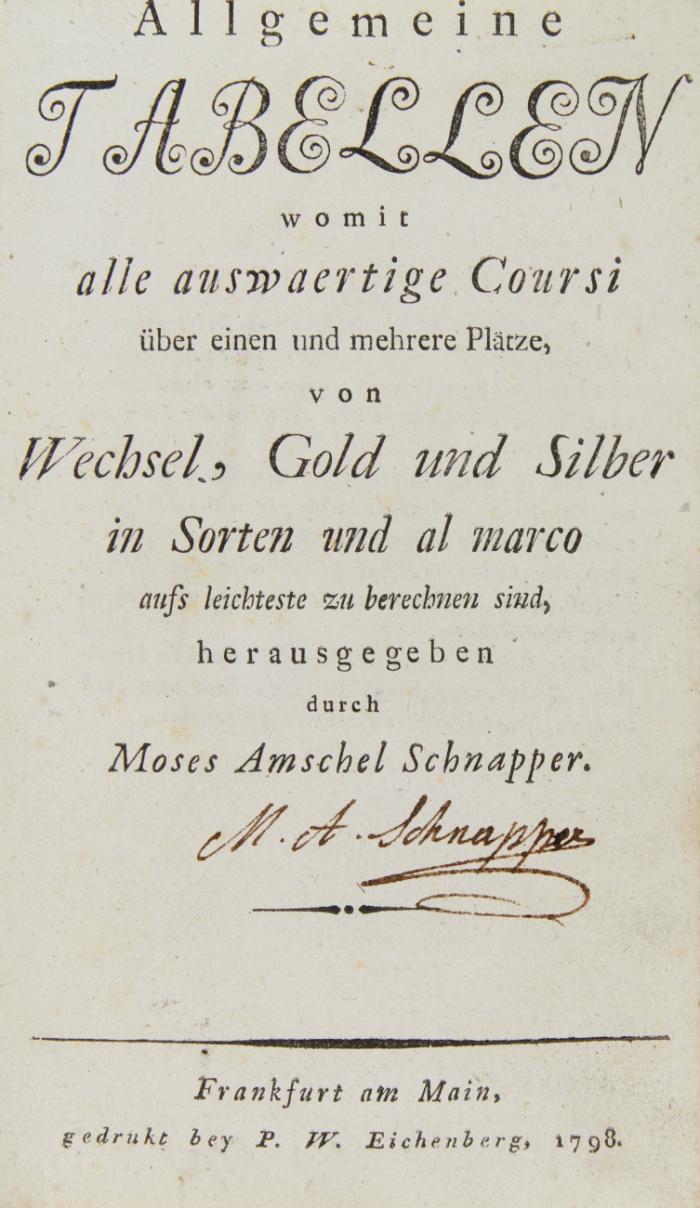 Allgemeine
TABELLEN
womit
alle auswaertige Coursi
über einen und mehrere Plätze,
von
Wechsel, Gold und Silber
in Sorten und al marco
aufs leichteste zu berechnen sind,
herausgegeben
durch
Moses Amschel Schnapper.
M. A. Schnapper
Frankfurt am Main,
gedrukt bey P. W. Eichenberg, 1798.